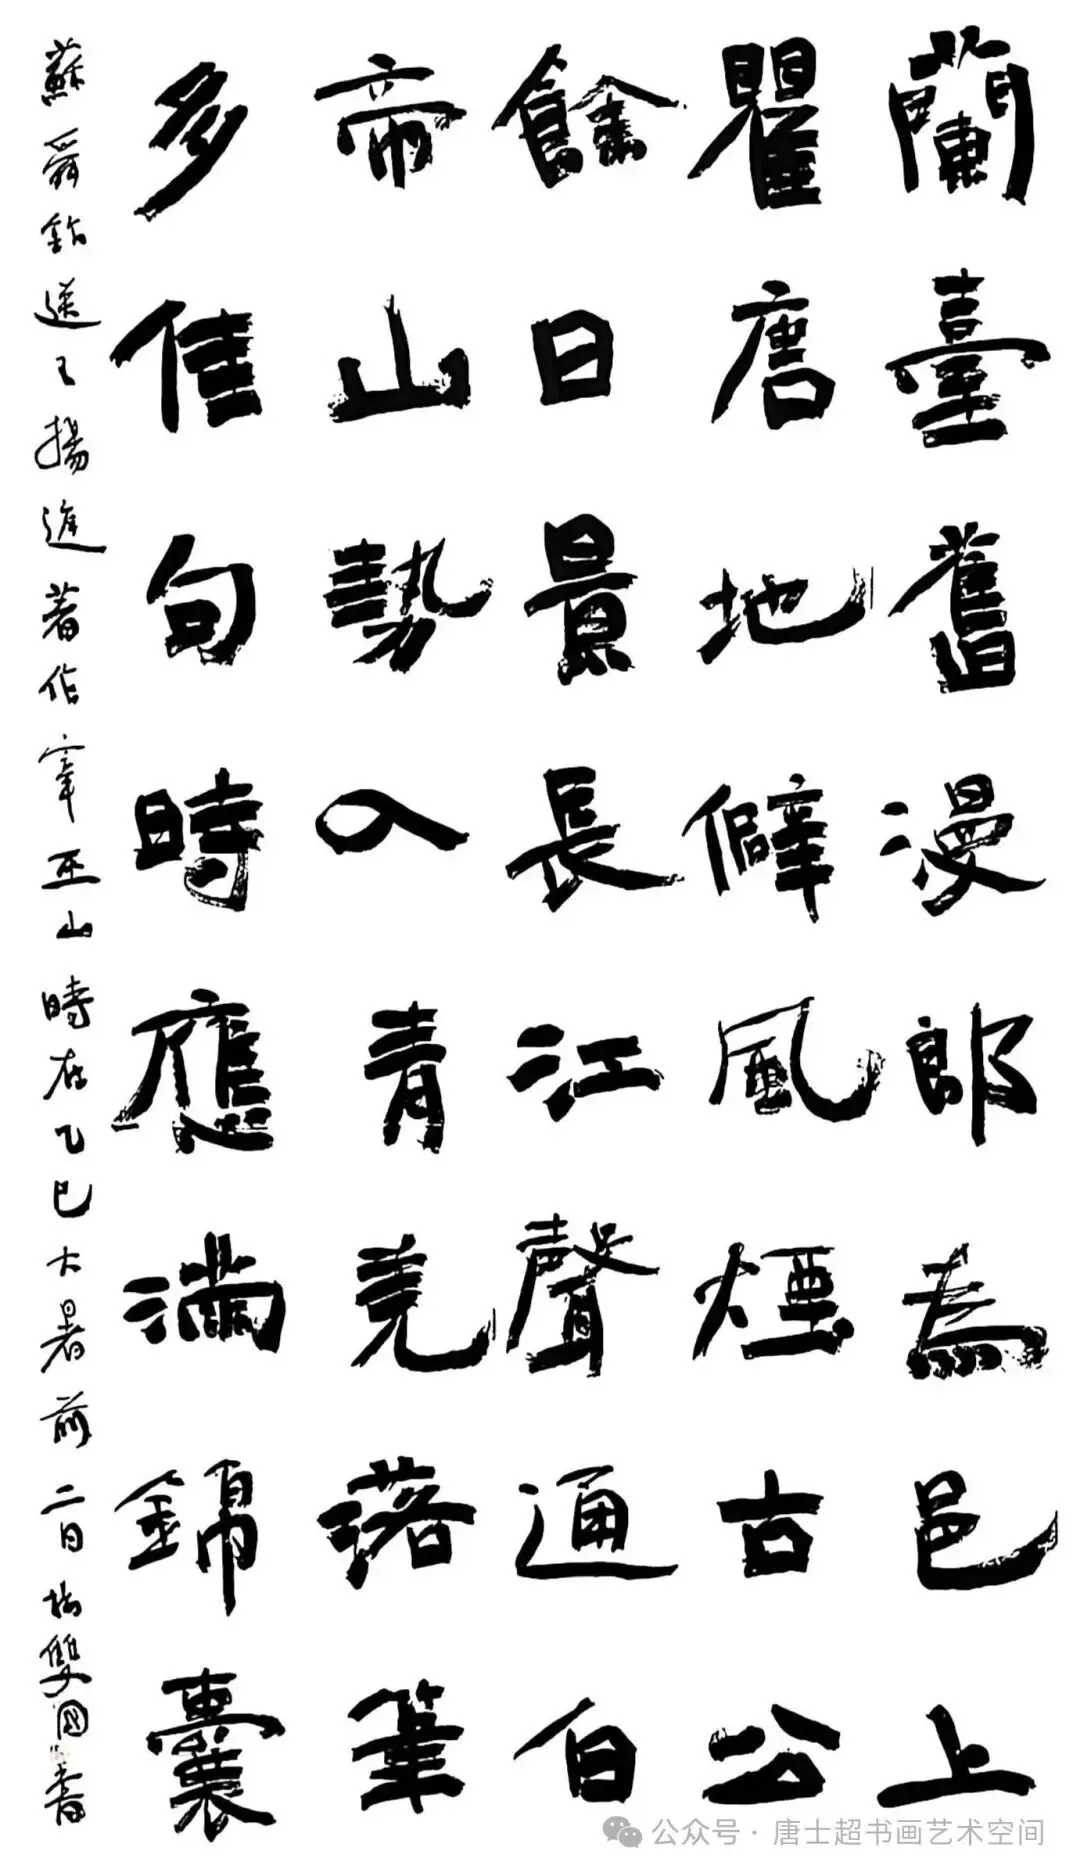 蘭臺舊漫郎為邑上
瞿唐地僻風煙古公
餘日景長江聲通白
帝山勢入青堯落筆
多佳句時應滿錦囊
蘇舜欽送王揚進著作宰巫山時在乙巳大暑前二日於雙國書
公众号·唐士超书画艺术空间